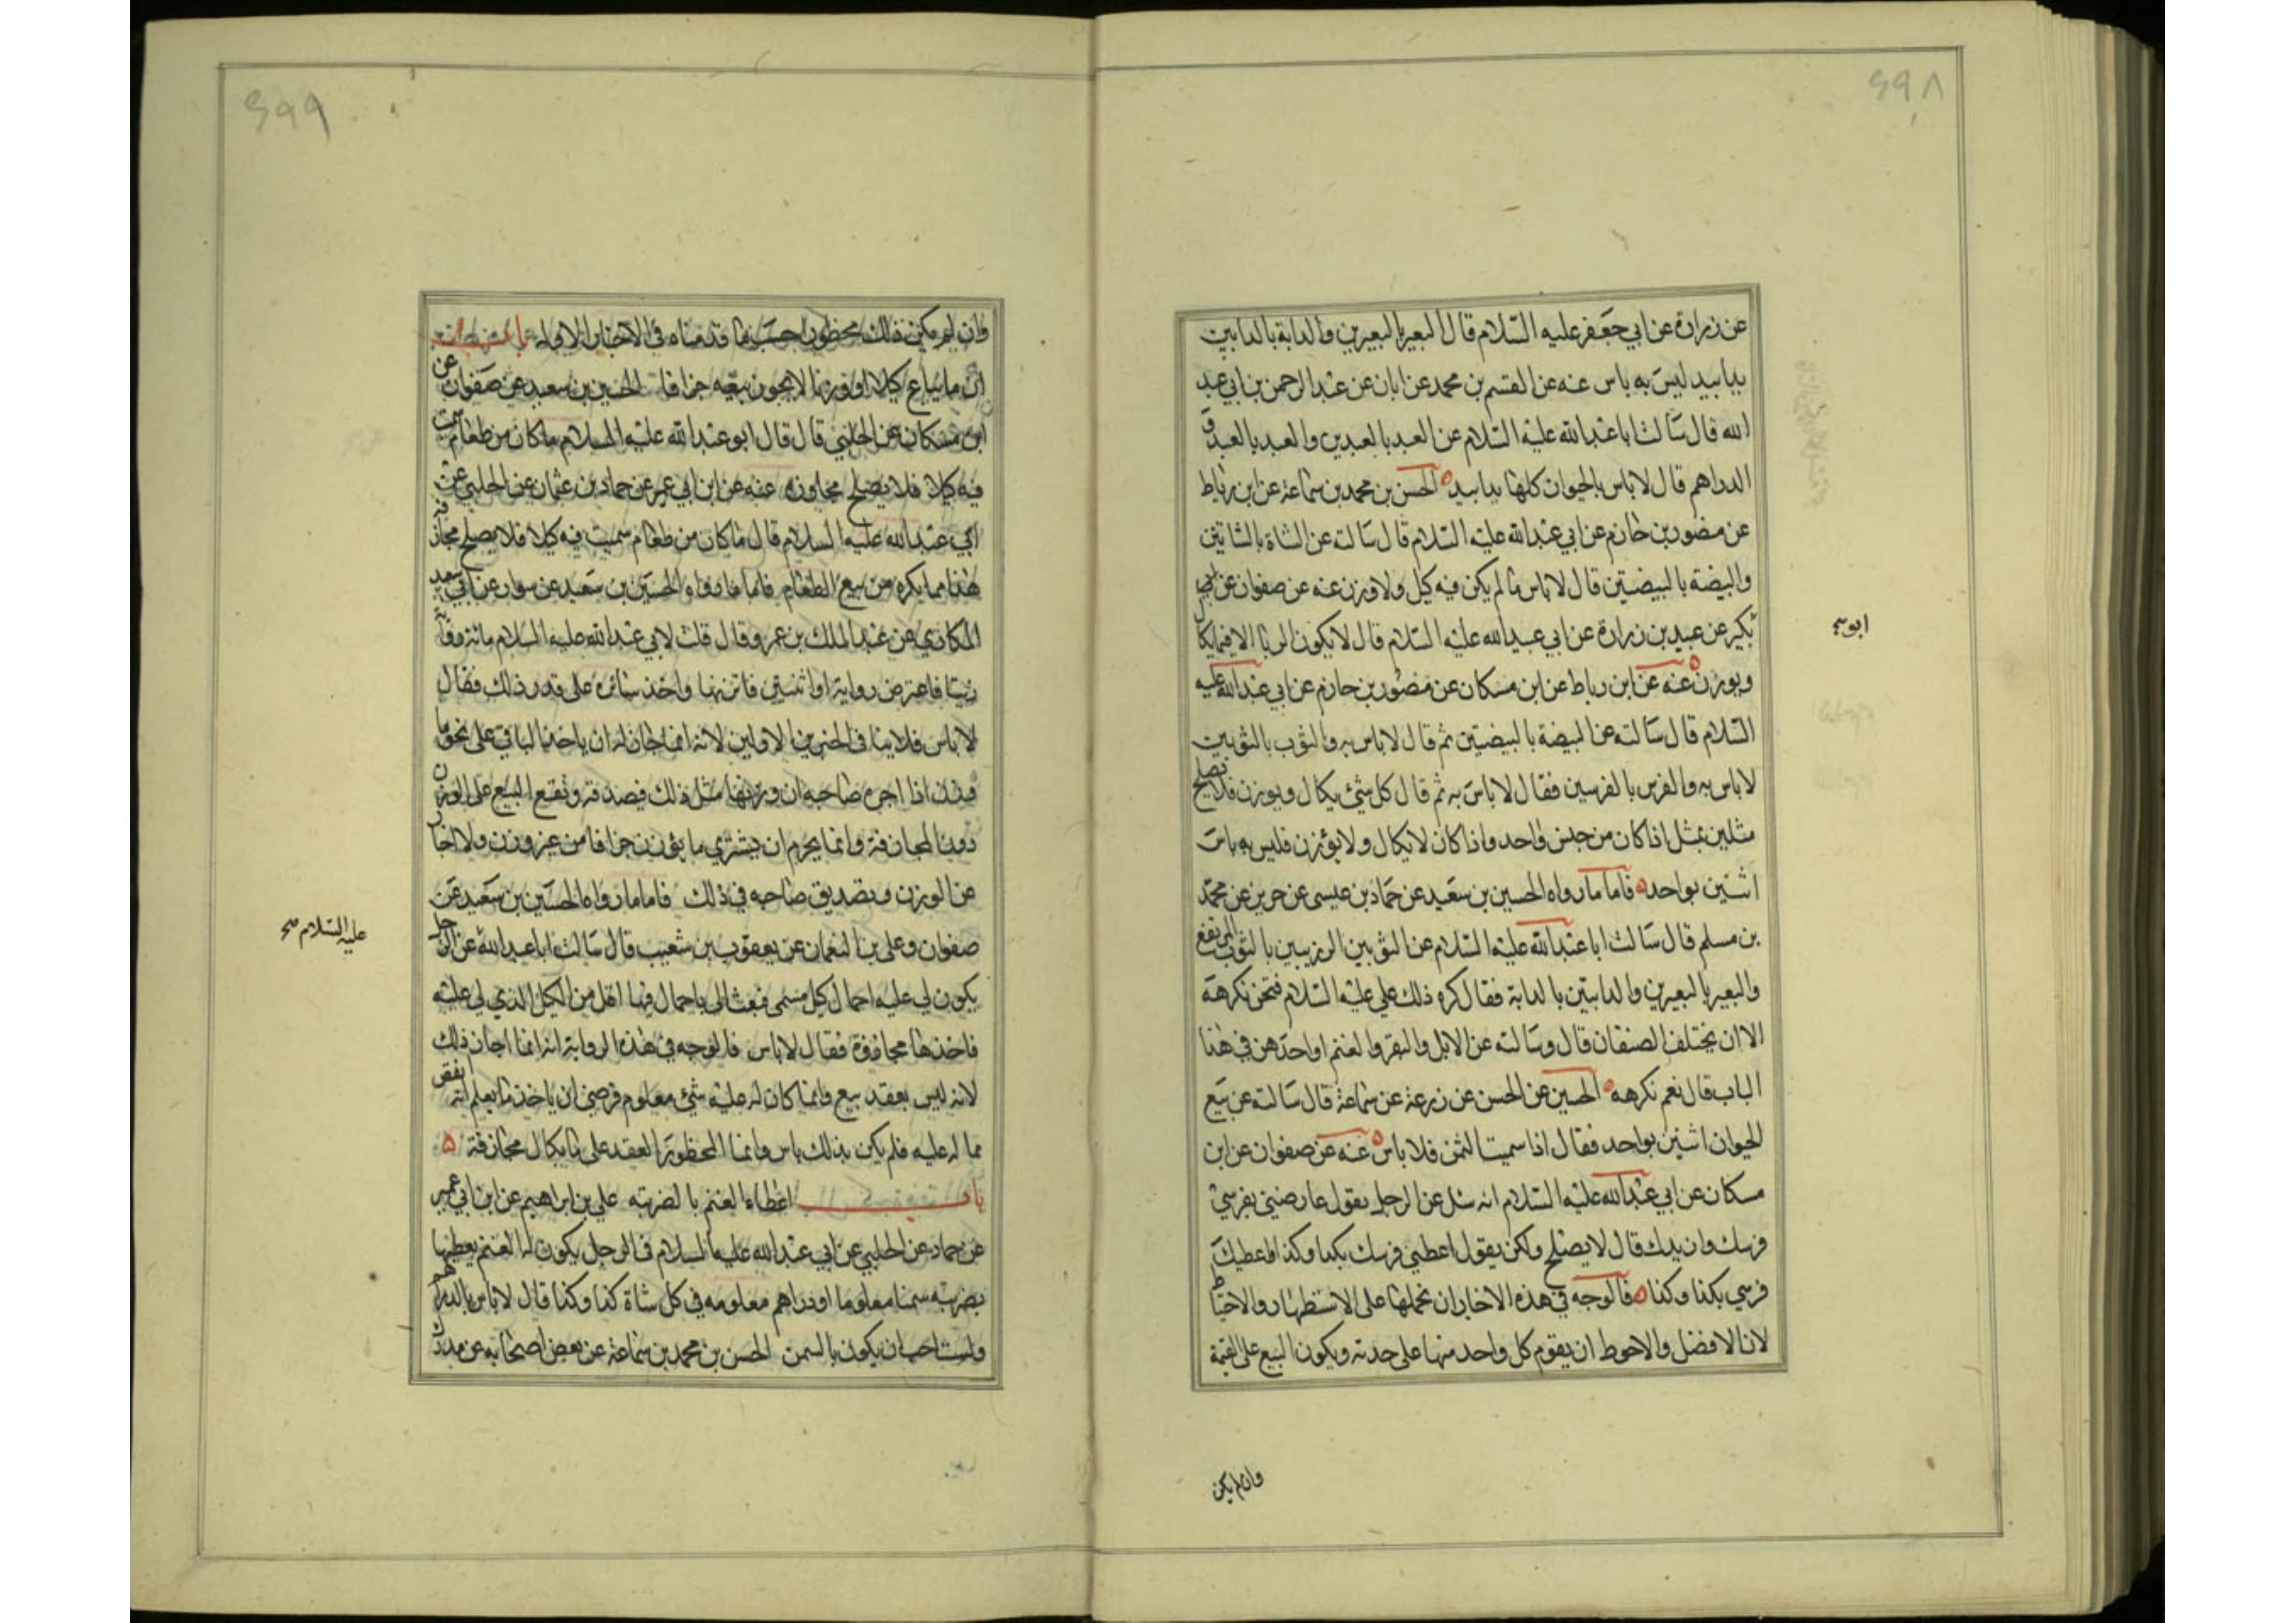 ۶۹۸
عن زرارة عن ابي جعفر عليه السلام قال البعير بالبعيرين والدابة بالدابتين
يدا بيد ليس به باس عنه عن القسم بن محمد عن ابان عن عبد الرحمن بن ابي عبد
الله قال سالت ابا عبد الله عليه السلام عن العبد بالعبدين والعبد بالعبد و
الدراهم قال لا باس بالحيوان كلها يدا بيد الحسن بن محمد بن سماعة عن ابن رباط
عن منصور بن حازم عن ابي عبد الله عليه السلام قال سالته عن الشاة بالشاتين
والبيضة بالبيضتين قال لا باس ما لم يكن فيه كيل ولا وزن عنه عن صفوان عن ابن
بكير عن عبيد بن زرارة عن ابي عبد الله عليه السلام قال لا يكون الربا الا فيما يكال
ابو صح
ويوزن عنه عن ابن رباط عن ابن مسكان عن منصور بن حازم عن ابي عبد الله عليه
السلام قال سالته عن البيضة بالبيضتين ثم قال لا باس به والثوب بالثوبين
لا باس به والفرس بالفرسين فقال لا باس به ثم قال كل شئ يكال ويوزن فلا يصلح
مثلين بمثل اذا كان من جنس واحد واذا كان لا يكال ولا يوزن فليس به باس
اثنين بواحد فاما ما رواه الحسين بن سعيد عن حماد بن عيسى عن حريز عن محمد
بن مسلم قال سالت ابا عبد الله عليه السلام عن الثوبين الرديين بالثوب المرتفع
والبعير بالبعيرين والدابتين بالدابة فقال كره ذلك علي عليه السلام فنحن نكرهه
الا ان يختلف الصنفان قال وسالته عن الابل والبقر والغنم او احدهن في هذا
الباب قال نعم نكرهه الحسين عن الحسن عن زرعة عن سماعة قال سالته عن بيع
الحيوان اثنين بواحد فقال اذا سميت الثمن فلا باس عنه عن صفوان عن ابن
مسكان عن ابي عبد الله عليه السلام انه سئل عن الرجل يقول عارضني بفرسي
فرسك وازيدك قال لا يصلح ولكن يقول اعطني فرسك بكذا وكذا واعطيك
فرسي بكذا وكذا فالوجه في هذه الاخبار ان نحملها على الاستظهار والاحتياط
لان الافضل والاحوط ان يقوم كل واحد منها على حدته ويكون البيع على القيمة
وان لم يكن
۶۹۹
وان لم يكن ذلك محظورا حسب ما قدمناه في الاخبار الاوله
ان ما يباع كيلا او وزنا لا يجوز بيعه جزافا الحسين بن سعيد عن صفوان عن
ابن مسكان عن الحلبي قال قال ابو عبد الله عليه السلام ما كان من طعام سميت
فيه كيلا فلا يصلح مجازفة عنه عن ابن ابي عمير عن حماد بن عثمان عن الحلبي عن
ابي عبد الله عليه السلام قال ما كان من طعام سميت فيه كيلا فلا يصلح مجازفة
هذا مما يكره من بيع الطعام فاما ما رواه الحسين بن سعيد عن سوار عن ابي سعيد
المكاري عن عبد الملك بن عمرو قال قلت لابي عبد الله عليه السلام
زيتا فاعترض راوية او اثنتين فاتزنهما واخذ سائره على قدر ذلك فقال
لا باس فلا ينافى الخبرين الاولين لانه انما جاز له ان ياخذ الباقي على نحو ما
وزن اذا اخبره صاحبه ان وزنها مثل ذلك فيصدقه ويقع البيع على الوزن
دون المجازفة وانما يحرم ان يشتري ما يوزن جزافا من غير وزن ولا اخبار
عن الوزن وتصديق صاحبه في ذلك فاما ما رواه الحسين بن سعيد عن
صفوان وعلي بن النعمان عن يعقوب بن شعيب قال سالت ابا عبد الله عن الرجل
عليه السلام صح
يكون لي عليه احمال كيل مسمى فبعث الى باحمال فيها اقل من الكيل الذي لي عليه
فاخذها مجازفة فقال لا باس فالوجه في هذه الرواية انه انما اجاز ذلك
لانه ليس بعقد بيع وانما كان له عليه شئ معلوم فرضي ان ياخذ ما يعلم انه ينقص
مما له عليه فلم يكن بذلك باس وانما المحظور العقد على ما يكال مجازفة
باب اعطاء الغنم بالضريبة علي بن ابراهيم عن ابن ابي عمير
عن حماد عن الحلبي عن ابي عبد الله عليه السلام في الرجل يكون له الغنم يعطيها
بضريبة سمنا معلوما او دراهم معلومه في كل شاة كذا وكذا قال لا باس بالدراهم
ولست احب ان يكون بالسمن الحسن بن محمد بن سماعة عن بعض اصحابه عن مدرك